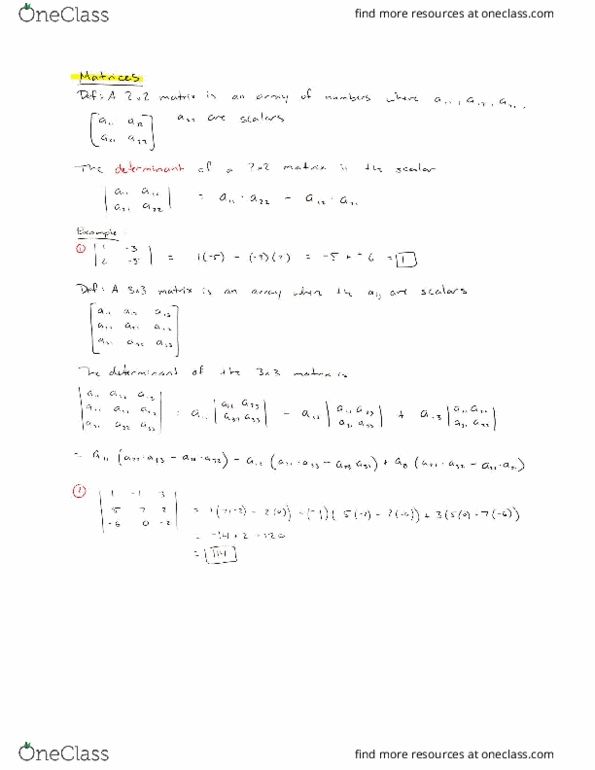 OneClass find more resources at oneclass.com
Matrices
Def: A 2x2 matrix is an array of numbers where a₁₁, a₁₂, a₂₁,
[a₁₁ a₁₂] a₂₂ are scalars
[a₂₁ a₂₂]
The determinant of a 2x2 matrix is the scalar
|a₁₁ a₁₂| = a₁₁ · a₂₂ - a₁₂ · a₂₁
|a₂₁ a₂₂|
Example:
① |1 -3| = 1(-5) - (-3)(2) =
|2 -5|
Def: A 3x3 matrix is an array where the aᵢⱼ are scalars
[a₁₁ a₁₂ a₁₃]
[a₂₁ a₂₂ a₂₃]
[a₃₁ a₃₂ a₃₃]
The determinant of the 3x3 matrix is
|a₁₁ a₁₂ a₁₃|
|a₂₁ a₂₂ a₂₃| = a₁₁ |a₂₂ a₂₃| - a₁₂ |a₂₁ a₂₃| + a₁₃ |a₂₁ a₂₂|
|a₃₁ a₃₂ a₃₃| |a₃₂ a₃₃| |a₃₁ a₃₃| |a₃₁ a₃₂|
② |1 -1 3|
|5 7 2| = 1(7(-2) - 2(0)) - (-1)(5(-2) - 2(-6)) + 3(5(0) - 7(-6))
|-6 0 -2| = -14 + 2
OneClass find more resources at oneclass.com